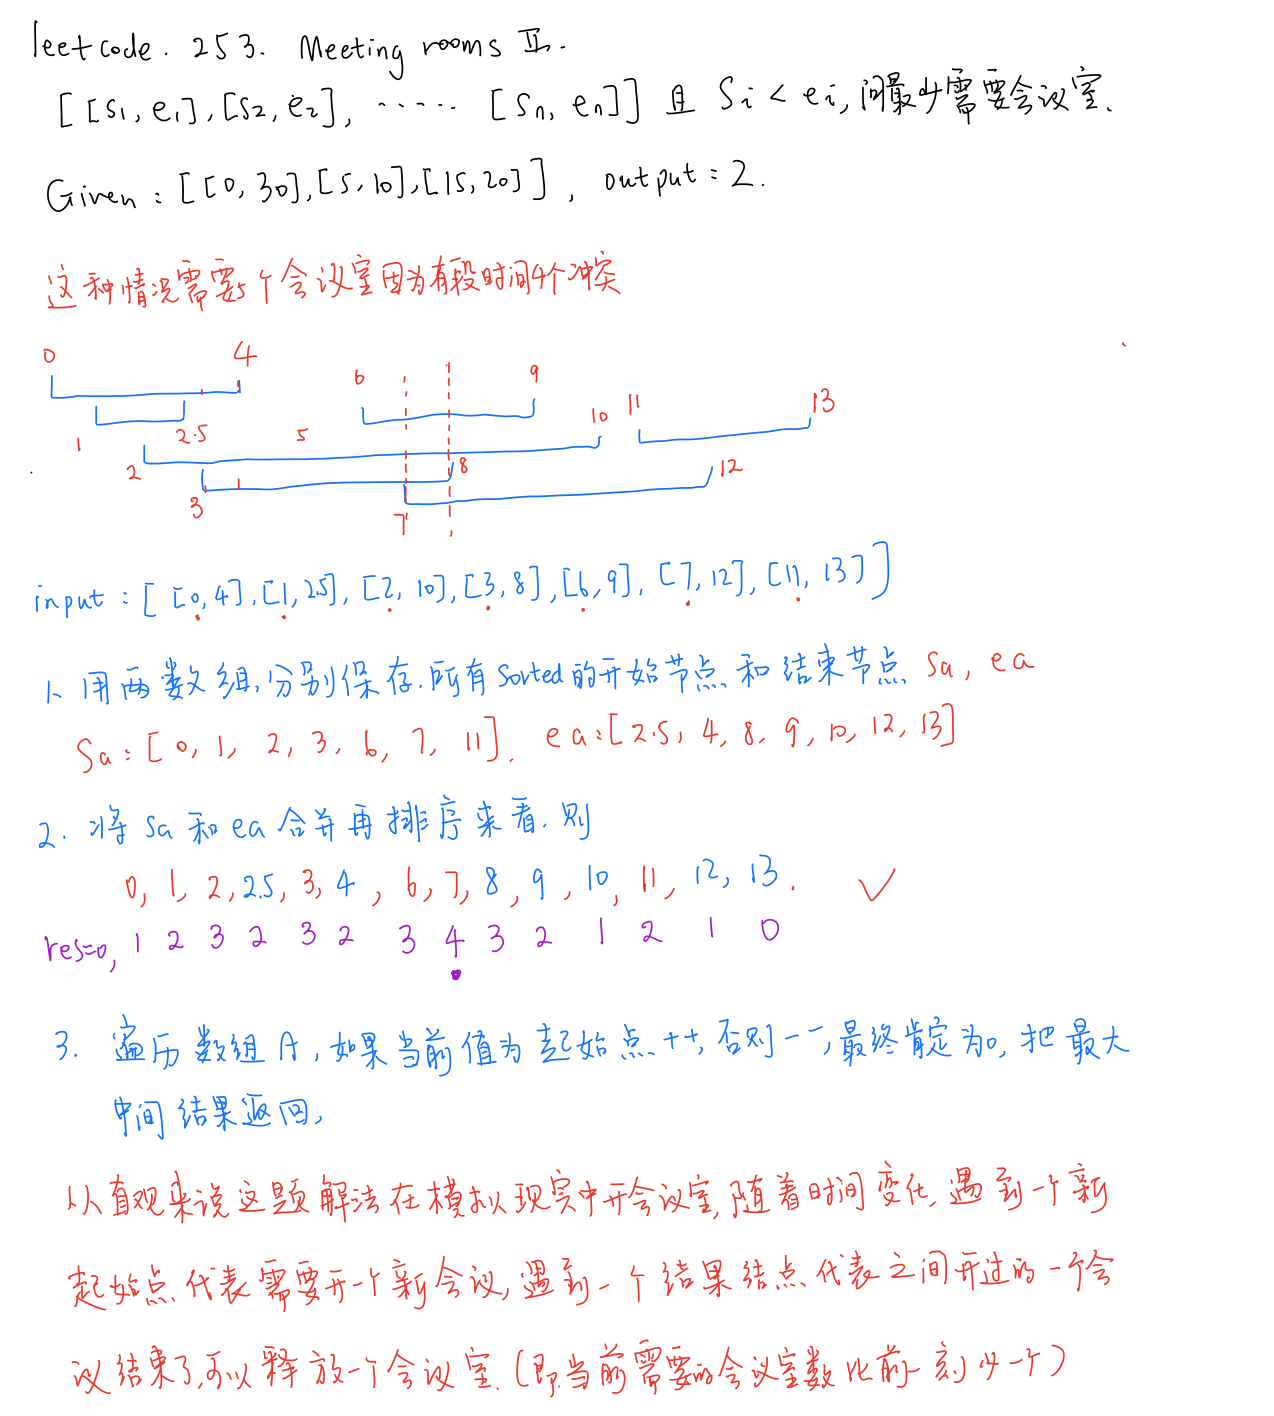 leetcode. 253. Meeting rooms II.
[[s1, e1], [s2, e2], ...... [sn, en]] 且 Si < ei, 问最少需要会议室.
Given: [[0, 30], [5, 10], [15, 20]], output: 2.
这种情况需要5个会议室因为有段时间4个冲突
0 4 6 9
1 2.5 5 10 11 13
2 8 12
3 7
input: [[0, 4], [1, 2.5], [2, 10], [3, 8], [6, 9], [7, 12], [11, 13]]
1、用两数组,分别保存.所有Sorted的开始节点和结束节点 Sa, ea
Sa: [0, 1, 2, 3, 6, 7, 11]. ea: [2.5, 4, 8, 9, 10, 12, 13]
2. 将 Sa 和 ea 合并再排序来看. 则
0, 1, 2, 2.5, 3, 4, 6, 7, 8, 9, 10, 11, 12, 13. ✓
res=0, 1 2 3 2 3 2 3 4 3 2 1 2 1 0
3. 遍历数组A, 如果当前值为起始点++, 否则--, 最终肯定为0, 把最大
中间结果返回,
从直观来说这题解法在模拟现实中开会议室,随着时间变化,遇到一个新
起始点代表需要开一个新会议,遇到一个结果结点代表之间开过的一个会
议结束了,可以释放一个会议室.(即当前需要的会议室数比前一刻少一个)